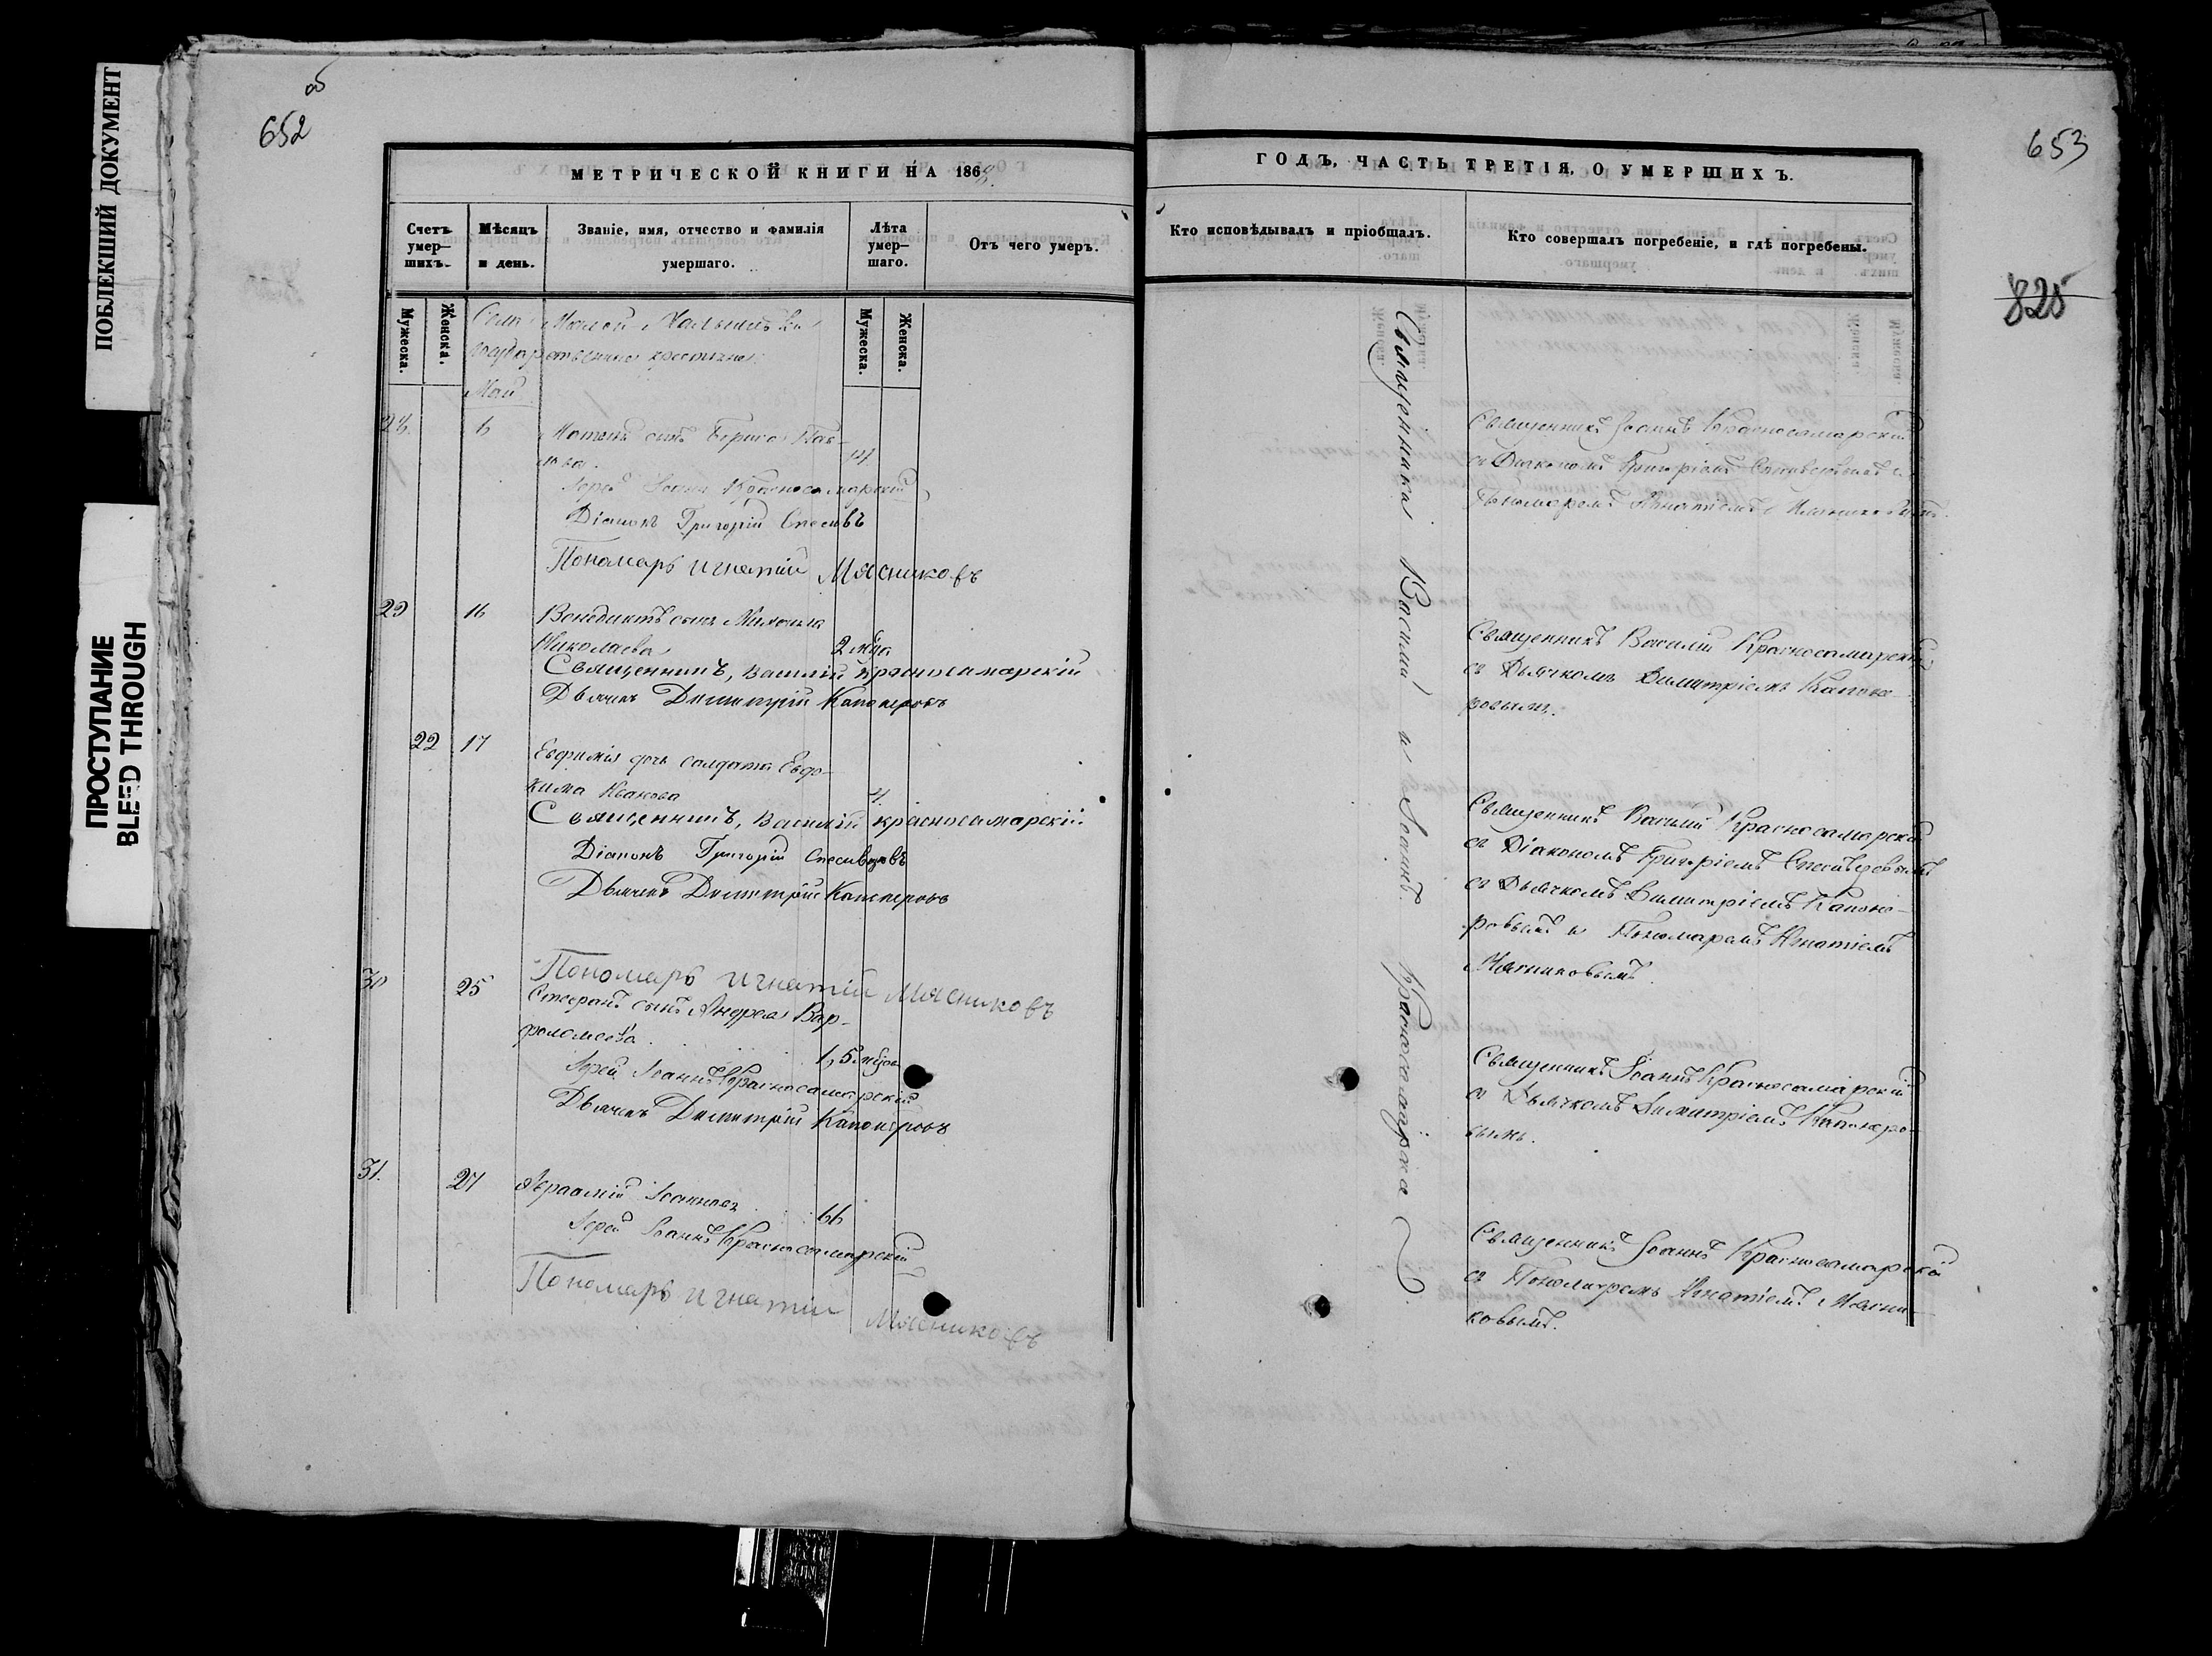 ПОБЛЕКШИЙ ДОКУМЕНТ
ПРОСТУПАНИЕ
BLEED THROUGH
об
652
МЕТРИЧЕСКОЙ КНИГИ НА 1869
Счетъ умер-шихъ.
Мѣсяцъ и день.
Званіе, имя, отчество и фамилія умершаго.
Лѣта умер-шаго.
Отъ чего умеръ.
Мужеска.
Женска.
Мужеска.
Женска.
Села Малой
государственные крестьяне
Май
28 6
сынъ Бориса Пав-
лова. 14
Іерей Іоаннъ Красносамарскій
Діаконъ Григорій
Пономарь Игнатій Мясниковъ
29 16 Венедиктъ сынъ Михаила
Николаева 2 м҃ца
Священникъ, Василій Красносамарскій
Дьячекъ Димитрій Капонеровъ
22 17 Евфимія дочь солдата Евдо-
кима Иванова 4.
Священникъ, Василій Красносамарскій
Діаконъ Григорій Спесивцовъ
Дьячекъ Димитрій Капонеровъ
Пономарь Игнатій Мясниковъ
30 25 Стефанъ сынъ Андрея Вар-
фоломеева. 1,5 м҃цов
Іерей Іоаннъ Красносамарскій
Дьячекъ Димитрій Капонеровъ
31. 27 Авраамій Іоанновъ 66
Іерей Іоаннъ Красносамарскій
Пономарь Игнатій Мясниковъ
653
825
ГОДЪ, ЧАСТЬ ТРЕТІЯ, О УМЕРШИХЪ.
Кто исповѣдывалъ и пріобщалъ.
Кто совершалъ погребеніе, и гдѣ погребены.
Священники Василій и Іоаннъ Красносамарскіе
Священникъ Іоаннъ Красносамарскій
съ Діакономъ Григоріемъ и
Пономаремъ Игнатіемъ
Священникъ Василій Красносамарскій
съ Дьячкомъ Димитріемъ Капоне-
ровымъ.
Священникъ Василій Красносамарскій
съ Діакономъ Григоріемъ Спесивцевымъ
съ Дьячкомъ Димитріемъ Капоне-
ровымъ и Пономаремъ Игнатіемъ
Мясниковымъ.
Священникъ Іоаннъ Красносамарскій
съ Дьячкомъ Димитріемъ Капонеро-
вымъ.
Священникъ Іоаннъ Красносамарскій
съ Пономаремъ Игнатіемъ Мясни-
ковымъ.